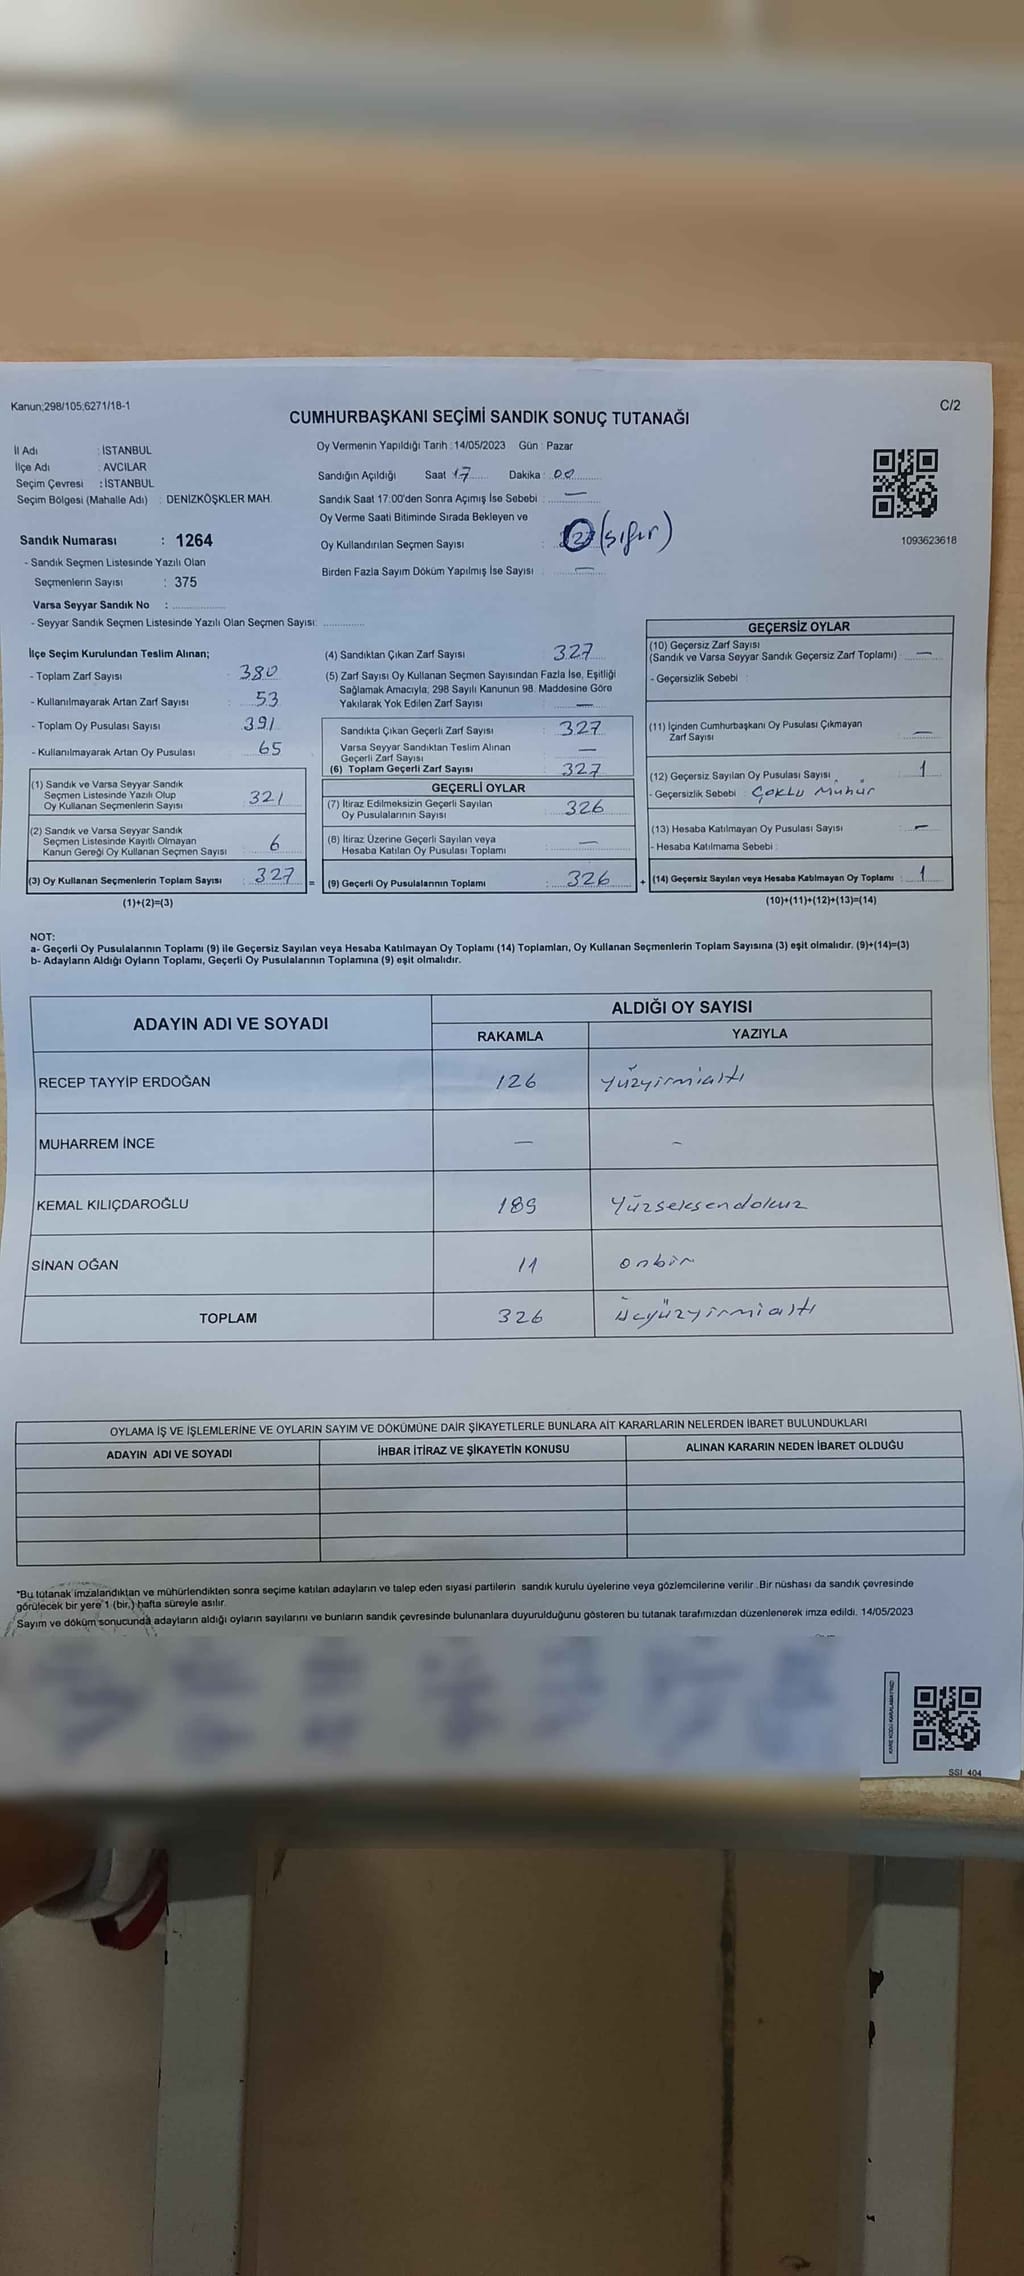 Kanun;298/105,6271/18-1
C/2
CUMHURBAŞKANI SEÇİMİ SANDIK SONUÇ TUTANAĞI
İl Adı : İSTANBUL
İlçe Adı : AVCILAR
Seçim Çevresi : İSTANBUL
Seçim Bölgesi (Mahalle Adı) : DENİZKÖŞKLER MAH.
Sandık Numarası : 1264
- Sandık Seçmen Listesinde Yazılı Olan
Seçmenlerin Sayısı : 375
Varsa Seyyar Sandık No :
- Seyyar Sandık Seçmen Listesinde Yazılı Olan Seçmen Sayısı:
Oy Vermenin Yapıldığı Tarih : 14/05/2023 Gün : Pazar
Sandığın Açıldığı Saat 17 Dakika : 00
Sandık Saat 17:00'den Sonra Açımış İse Sebebi : —
Oy Verme Saati Bitiminde Sırada Bekleyen ve
Oy Kullandırılan Seçmen Sayısı : 0 (sıfır)
Birden Fazla Sayım Döküm Yapılmış İse Sayısı : —
1093623618
İlçe Seçim Kurulundan Teslim Alınan;
- Toplam Zarf Sayısı : 380
- Kullanılmayarak Artan Zarf Sayısı : 53
- Toplam Oy Pusulası Sayısı : 391
- Kullanılmayarak Artan Oy Pusulası : 65
(1) Sandık ve Varsa Seyyar Sandık
Seçmen Listesinde Yazılı Olup
Oy Kullanan Seçmenlerin Sayısı : 321
(2) Sandık ve Varsa Seyyar Sandık
Seçmen Listesinde Kayıtlı Olmayan
Kanun Gereği Oy Kullanan Seçmen Sayısı : 6
(3) Oy Kullanan Seçmenlerin Toplam Sayısı : 327 =
(1)+(2)=(3)
(4) Sandıktan Çıkan Zarf Sayısı : 327
(5) Zarf Sayısı Oy Kullanan Seçmen Sayısından Fazla İse, Eşitliği
Sağlamak Amacıyla; 298 Sayılı Kanunun 98. Maddesine Göre
Yakılarak Yok Edilen Zarf Sayısı : —
Sandıkta Çıkan Geçerli Zarf Sayısı : 327
Varsa Seyyar Sandıktan Teslim Alınan
Geçerli Zarf Sayısı : —
(6) Toplam Geçerli Zarf Sayısı : 327
GEÇERLİ OYLAR
(7) İtiraz Edilmeksizin Geçerli Sayılan
Oy Pusulalarının Sayısı : 326
(8) İtiraz Üzerine Geçerli Sayılan veya
Hesaba Katılan Oy Pusulası Toplamı : —
(9) Geçerli Oy Pusulalarının Toplamı : 326 +
GEÇERSİZ OYLAR
(10) Geçersiz Zarf Sayısı
(Sandık ve Varsa Seyyar Sandık Geçersiz Zarf Toplamı) : —
- Geçersizlik Sebebi :
(11) İçinden Cumhurbaşkanı Oy Pusulası Çıkmayan
Zarf Sayısı : —
(12) Geçersiz Sayılan Oy Pusulası Sayısı : 1
- Geçersizlik Sebebi : Çoklu Mühür
(13) Hesaba Katılmayan Oy Pusulası Sayısı : —
- Hesaba Katılmama Sebebi :
(14) Geçersiz Sayılan veya Hesaba Katılmayan Oy Toplamı : 1
(10)+(11)+(12)+(13)=(14)
NOT:
a- Geçerli Oy Pusulalarının Toplamı (9) ile Geçersiz Sayılan veya Hesaba Katılmayan Oy Toplamı (14) Toplamları, Oy Kullanan Seçmenlerin Toplam Sayısına (3) eşit olmalıdır. (9)+(14)=(3)
b- Adayların Aldığı Oyların Toplamı, Geçerli Oy Pusulalarının Toplamına (9) eşit olmalıdır.
ADAYIN ADI VE SOYADI
ALDIĞI OY SAYISI
RAKAMLA YAZIYLA
RECEP TAYYİP ERDOĞAN 126 yüzyirmialtı
MUHARREM İNCE — -
KEMAL KILIÇDAROĞLU 189 Yüzseksendokuz
SİNAN OĞAN 11 onbir
TOPLAM 326 üçyüzyirmialtı
OYLAMA İŞ VE İŞLEMLERİNE VE OYLARIN SAYIM VE DÖKÜMÜNE DAİR ŞİKAYETLERLE BUNLARA AİT KARARLARIN NELERDEN İBARET BULUNDUKLARI
ADAYIN ADI VE SOYADI İHBAR İTİRAZ VE ŞİKAYETİN KONUSU ALINAN KARARIN NEDEN İBARET OLDUĞU
*Bu tutanak imzalandıktan ve mühürlendikten sonra seçime katılan adayların ve talep eden siyasi partilerin sandık kurulu üyelerine veya gözlemcilerine verilir .Bir nüshası da sandık çevresinde
görülecek bir yere 1 (bir,) hafta süreyle asılır.
Sayım ve döküm sonucunda adayların aldığı oyların sayılarını ve bunların sandık çevresinde bulunanlara duyurulduğunu gösteren bu tutanak tarafımızdan düzenlenerek imza edildi. 14/05/2023
KARE KODU KARALAMAYINIZ!
SSI_404